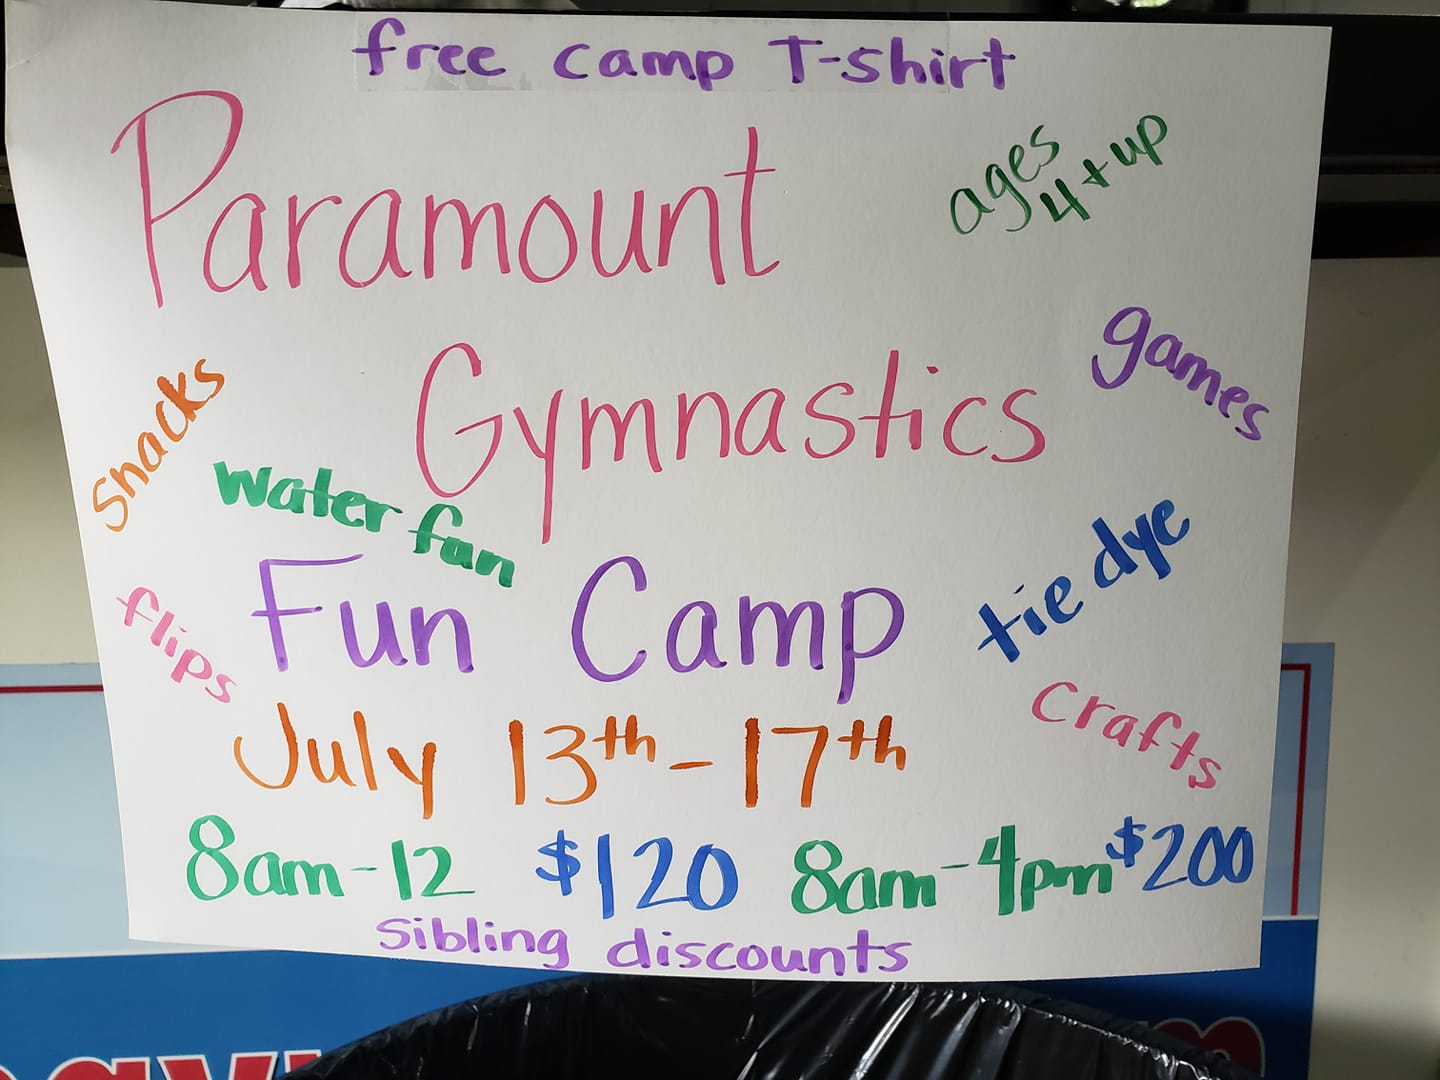 free camp T-shirt
Paramount
ages
4 + up
games
Gymnastics
snacks
water fun
Fun Camp
tie dye
flips
crafts
July 13th - 17th
8am - 12 $120 8am - 4pm $200
sibling discounts